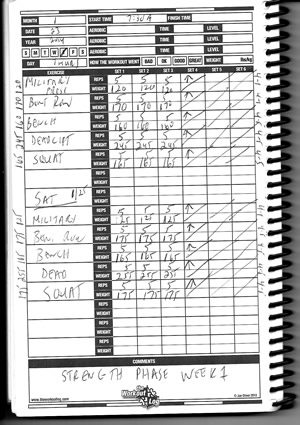 MONTH 1 START TIME 7:30A FINISH TIME
DATE 23 AEROBIC TIME LEVEL
YEAR 2014 AEROBIC TIME LEVEL
S M T W T F S AEROBIC TIME LEVEL
DAY THURS HOW THE WORKOUT WENT BAD OK GOOD GREAT WEIGHT lbs/kg
EXERCISE SET 1 SET 2 SET 3 SET 4 SET 5 SET 6
MILITARY REPS 5 5 5
PRESS WEIGHT 120 120 120
BENT ROW REPS 5 5 5
WEIGHT 170 170 170
BENCH REPS 5 5 5
WEIGHT 160 160 160
DEADLIFT REPS 5 5 5
WEIGHT 245 245 245
SQUAT REPS 5 5 5
WEIGHT 165 165 165
REPS
WEIGHT
SAT 1/25 REPS
WEIGHT
MILITARY REPS 5 5 5
WEIGHT 125 125 125
BEN. ROW REPS 5 5 5
WEIGHT 175 175 175
BENCH REPS 5 5 5
WEIGHT 165 165 165
DEAD REPS 5 5 5
WEIGHT 255 255 255
SQUAT REPS 5 5 5
WEIGHT 175 175 175
REPS
WEIGHT
REPS
WEIGHT
REPS
WEIGHT
COMMENTS
STRENGTH PHASE WEEK 1
www.theworkoutlog.com
The Workout Log